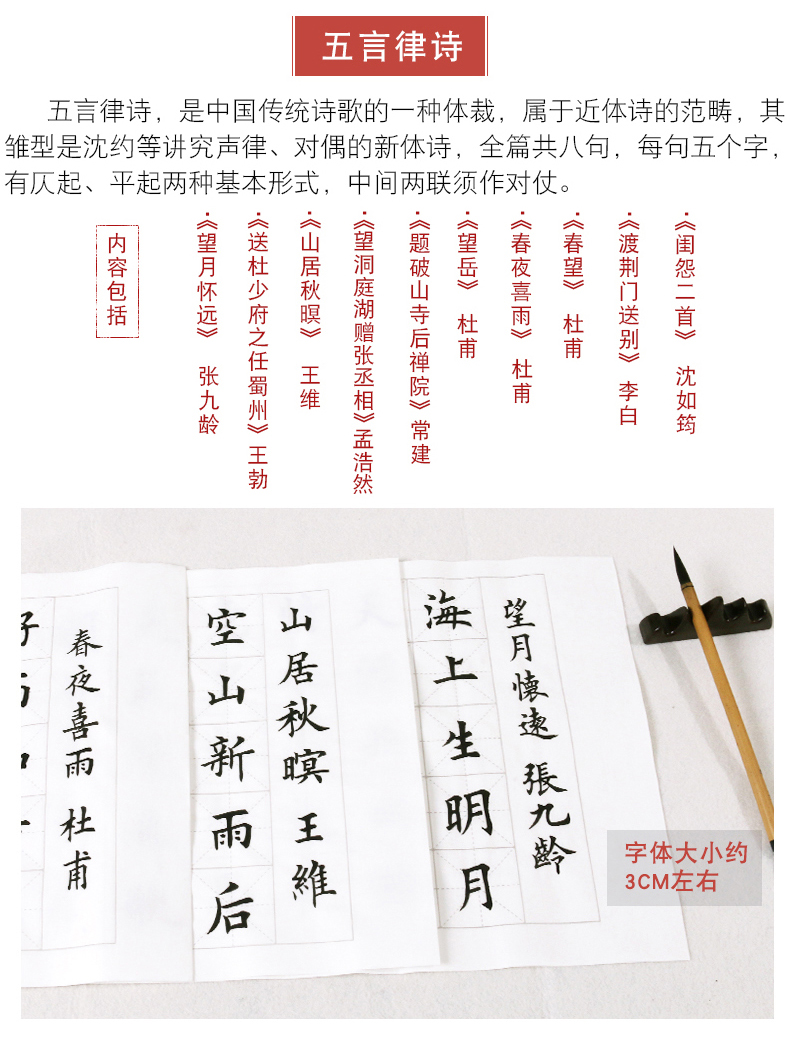 五言律诗
五言律诗，是中国传统诗歌的一种体裁，属于近体诗的范畴，其
雏型是沈约等讲究声律、对偶的新体诗，全篇共八句，每句五个字，
有仄起、平起两种基本形式，中间两联须作对仗。
内容包括
·《望月怀远》 张九龄
·《送杜少府之任蜀州》王勃
·《山居秋暝》 王维
·《望洞庭湖赠张丞相》孟浩然
·《题破山寺后禅院》常建
·《望岳》 杜甫
·《春夜喜雨》 杜甫
·《春望》 杜甫
·《渡荆门送别》 李白
·《闺怨二首》 沈如筠
望月懷遠 張九齡
海上生明月
山居秋暝 王維
空山新雨后
春夜喜雨 杜甫
字体大小约
3CM左右